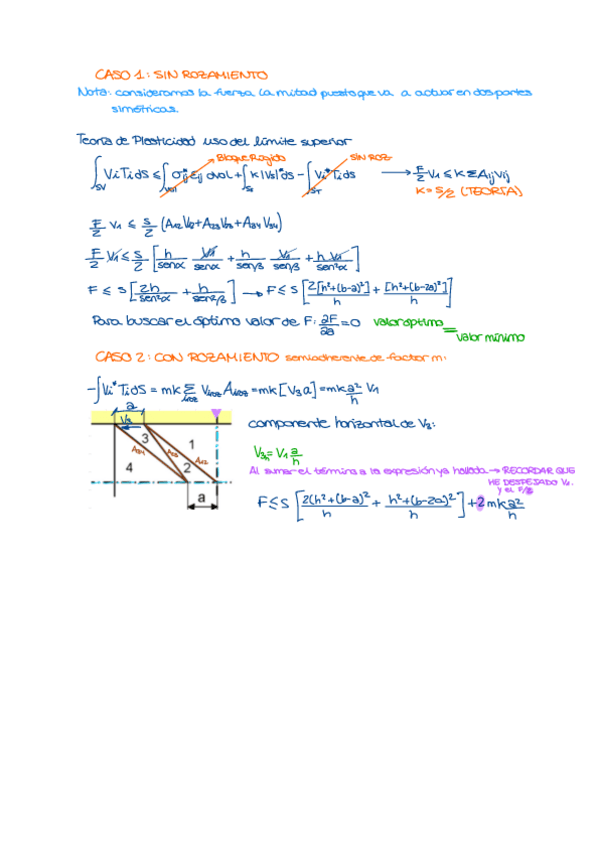 CASO 1: SIN ROZAMIENTO
Nota: consideramos la fuerza la mitad puesto que va a actuar en dos partes
simétricas.
Teoría de Plasticidad uso del límite superior
Bloque Rígido SIN ROZ.
∫_SV Vi Ti dS ≤ ∫_Vol σij* εij dVol + ∫_Ss K |Vs|* ds − ∫_ST Vi* Ti ds → F/2 V1 ≤ K Σ Aij Vij
K = S/2 (TEORÍA)
F/2 V1 ≤ S/2 (A12 V12 + A23 V23 + A34 V34)
F/2 V1 ≤ S/2 [h/senα V1/senα + h/senβ V1/senβ + h V1/sen²α]
F ≤ S [2h/sen²α + h/sen²β] → F ≤ S [2[h²+(b-a)²]/h + [h²+(b-2a)²]/h]
Para buscar el óptimo valor de F: ∂F/∂a = 0 valor óptimo =
valor mínimo
CASO 2: CON ROZAMIENTO semiadherente de factor m:
-∫Vi* Ti dS = mk Σ Vroz Aroz = mk [V3 a] = mk a²/h V1
a
V3
3
1
A34
A23
A12
4
2
a
componente horizontal de V3:
V3h = V1 a/h
Al sumar el término a la expresión ya hallada → RECORDAR QUE
HE DESPEJADO V1.
y el F/2
F ≤ S [2(h²+(b-a)²/h + h²+(b-2a)²/h] + 2 mk a²/h